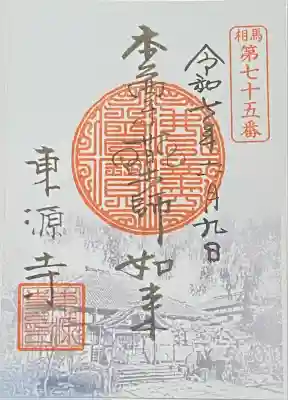 相馬
第七十五番
令和七年 月九日
本尊 薬師如来
東源寺